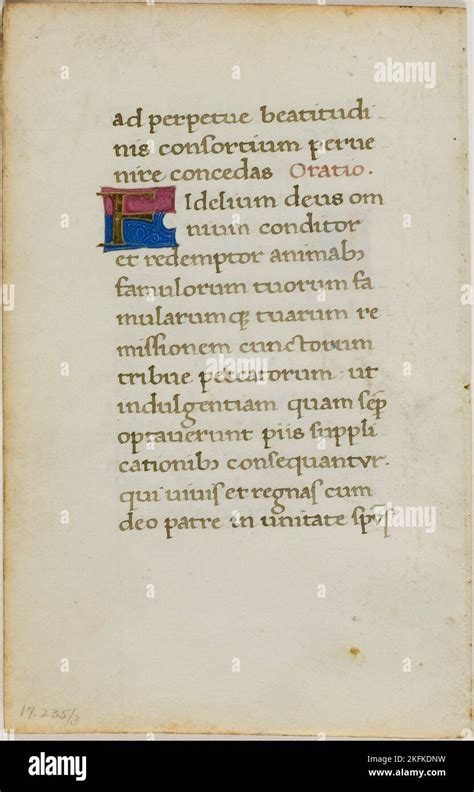 ad perpetue beatitudi
nis consortium perue
nire concedas Oratio.
Fidelium deus om
nium conditor
et redemptor animabꝫ
famulorum tuorum fa
mularumqꝫ tuarum re
missionem cunctorum
tribue peccatorum ut
indulgentiam quam semꝑ
optauerunt piis suppli
cationibꝫ consequantur.
qui uiuis et regnas cum
deo patre in unitate spūs
17.235/3
alamy
alamy
alamy
Image ID: 2CFKDNW
www.alamy.com